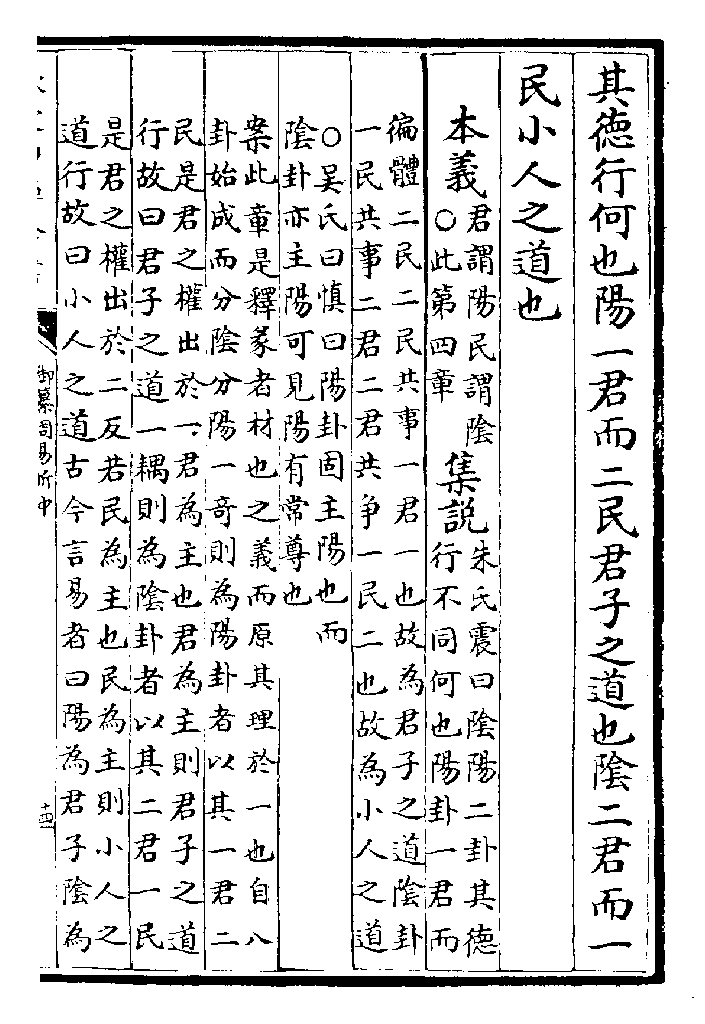 其德行何也陽一君而二民君子之道也隂二君而一
民小人之道也
本義
君謂陽民謂隂
○此第四章
集説
朱氏震曰隂陽二卦其德
行不同何也陽卦一君而
徧體二民二民共事一君一也故為君子之道隂卦
一民共事二君二君共争一民二也故為小人之道
○吴氏曰慎曰陽卦固主陽也而
隂卦亦主陽可見陽有常尊也
案此章是釋彖者材也之義而原其理於一也自八
卦始成而分隂分陽一竒則為陽卦者以其一君二
民是君之權出於一君為主也君為主則君子之道
行故曰君子之道一耦則為隂卦者以其二君一民
是君之權出於二反若民為主也民為主則小人之
道行故曰小人之道古今言易者曰陽為君子隂為
御纂周易折中
十四